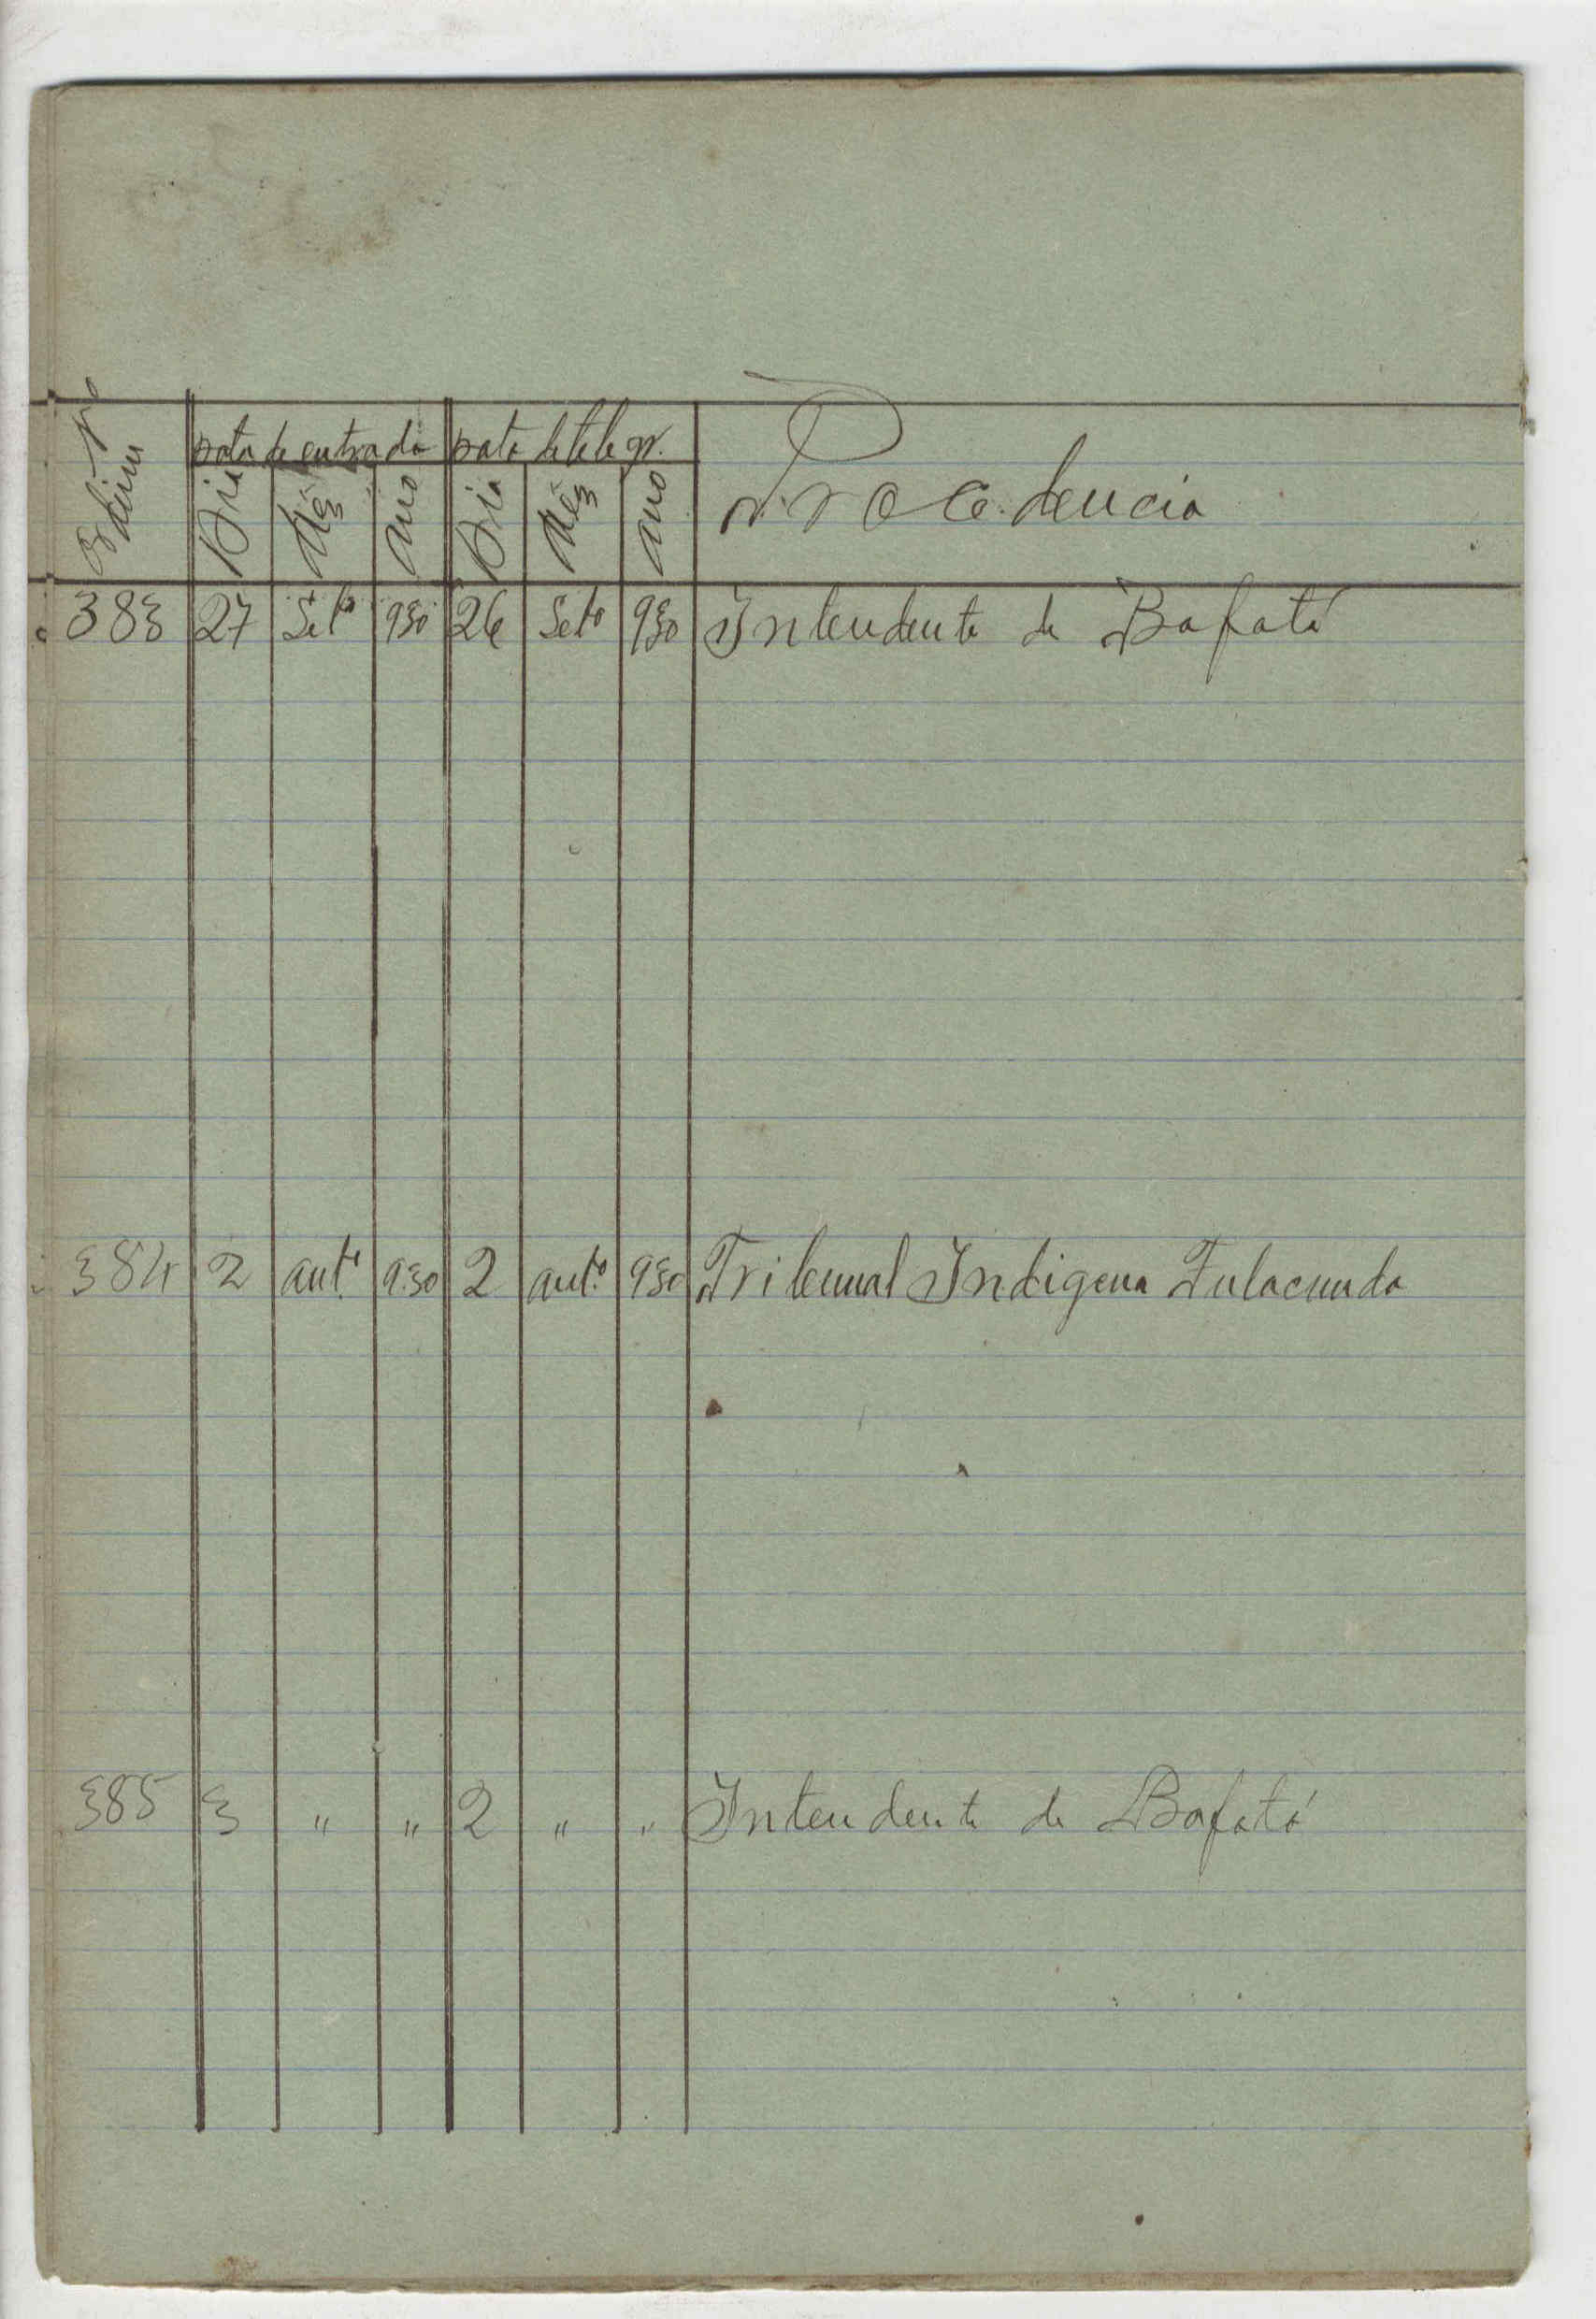 Nº Ordem
Data de entrada Data de telegr. Procedencia
Dia Mês Ano Dia Mês Ano
383 27 Setº 930 26 Setº 930 Intendente de Bafatá
384 2 outº 930 2 outº 930 Tribunal Indigena Fulacunda
385 3 " " 2 " " Intendente de Bafatá